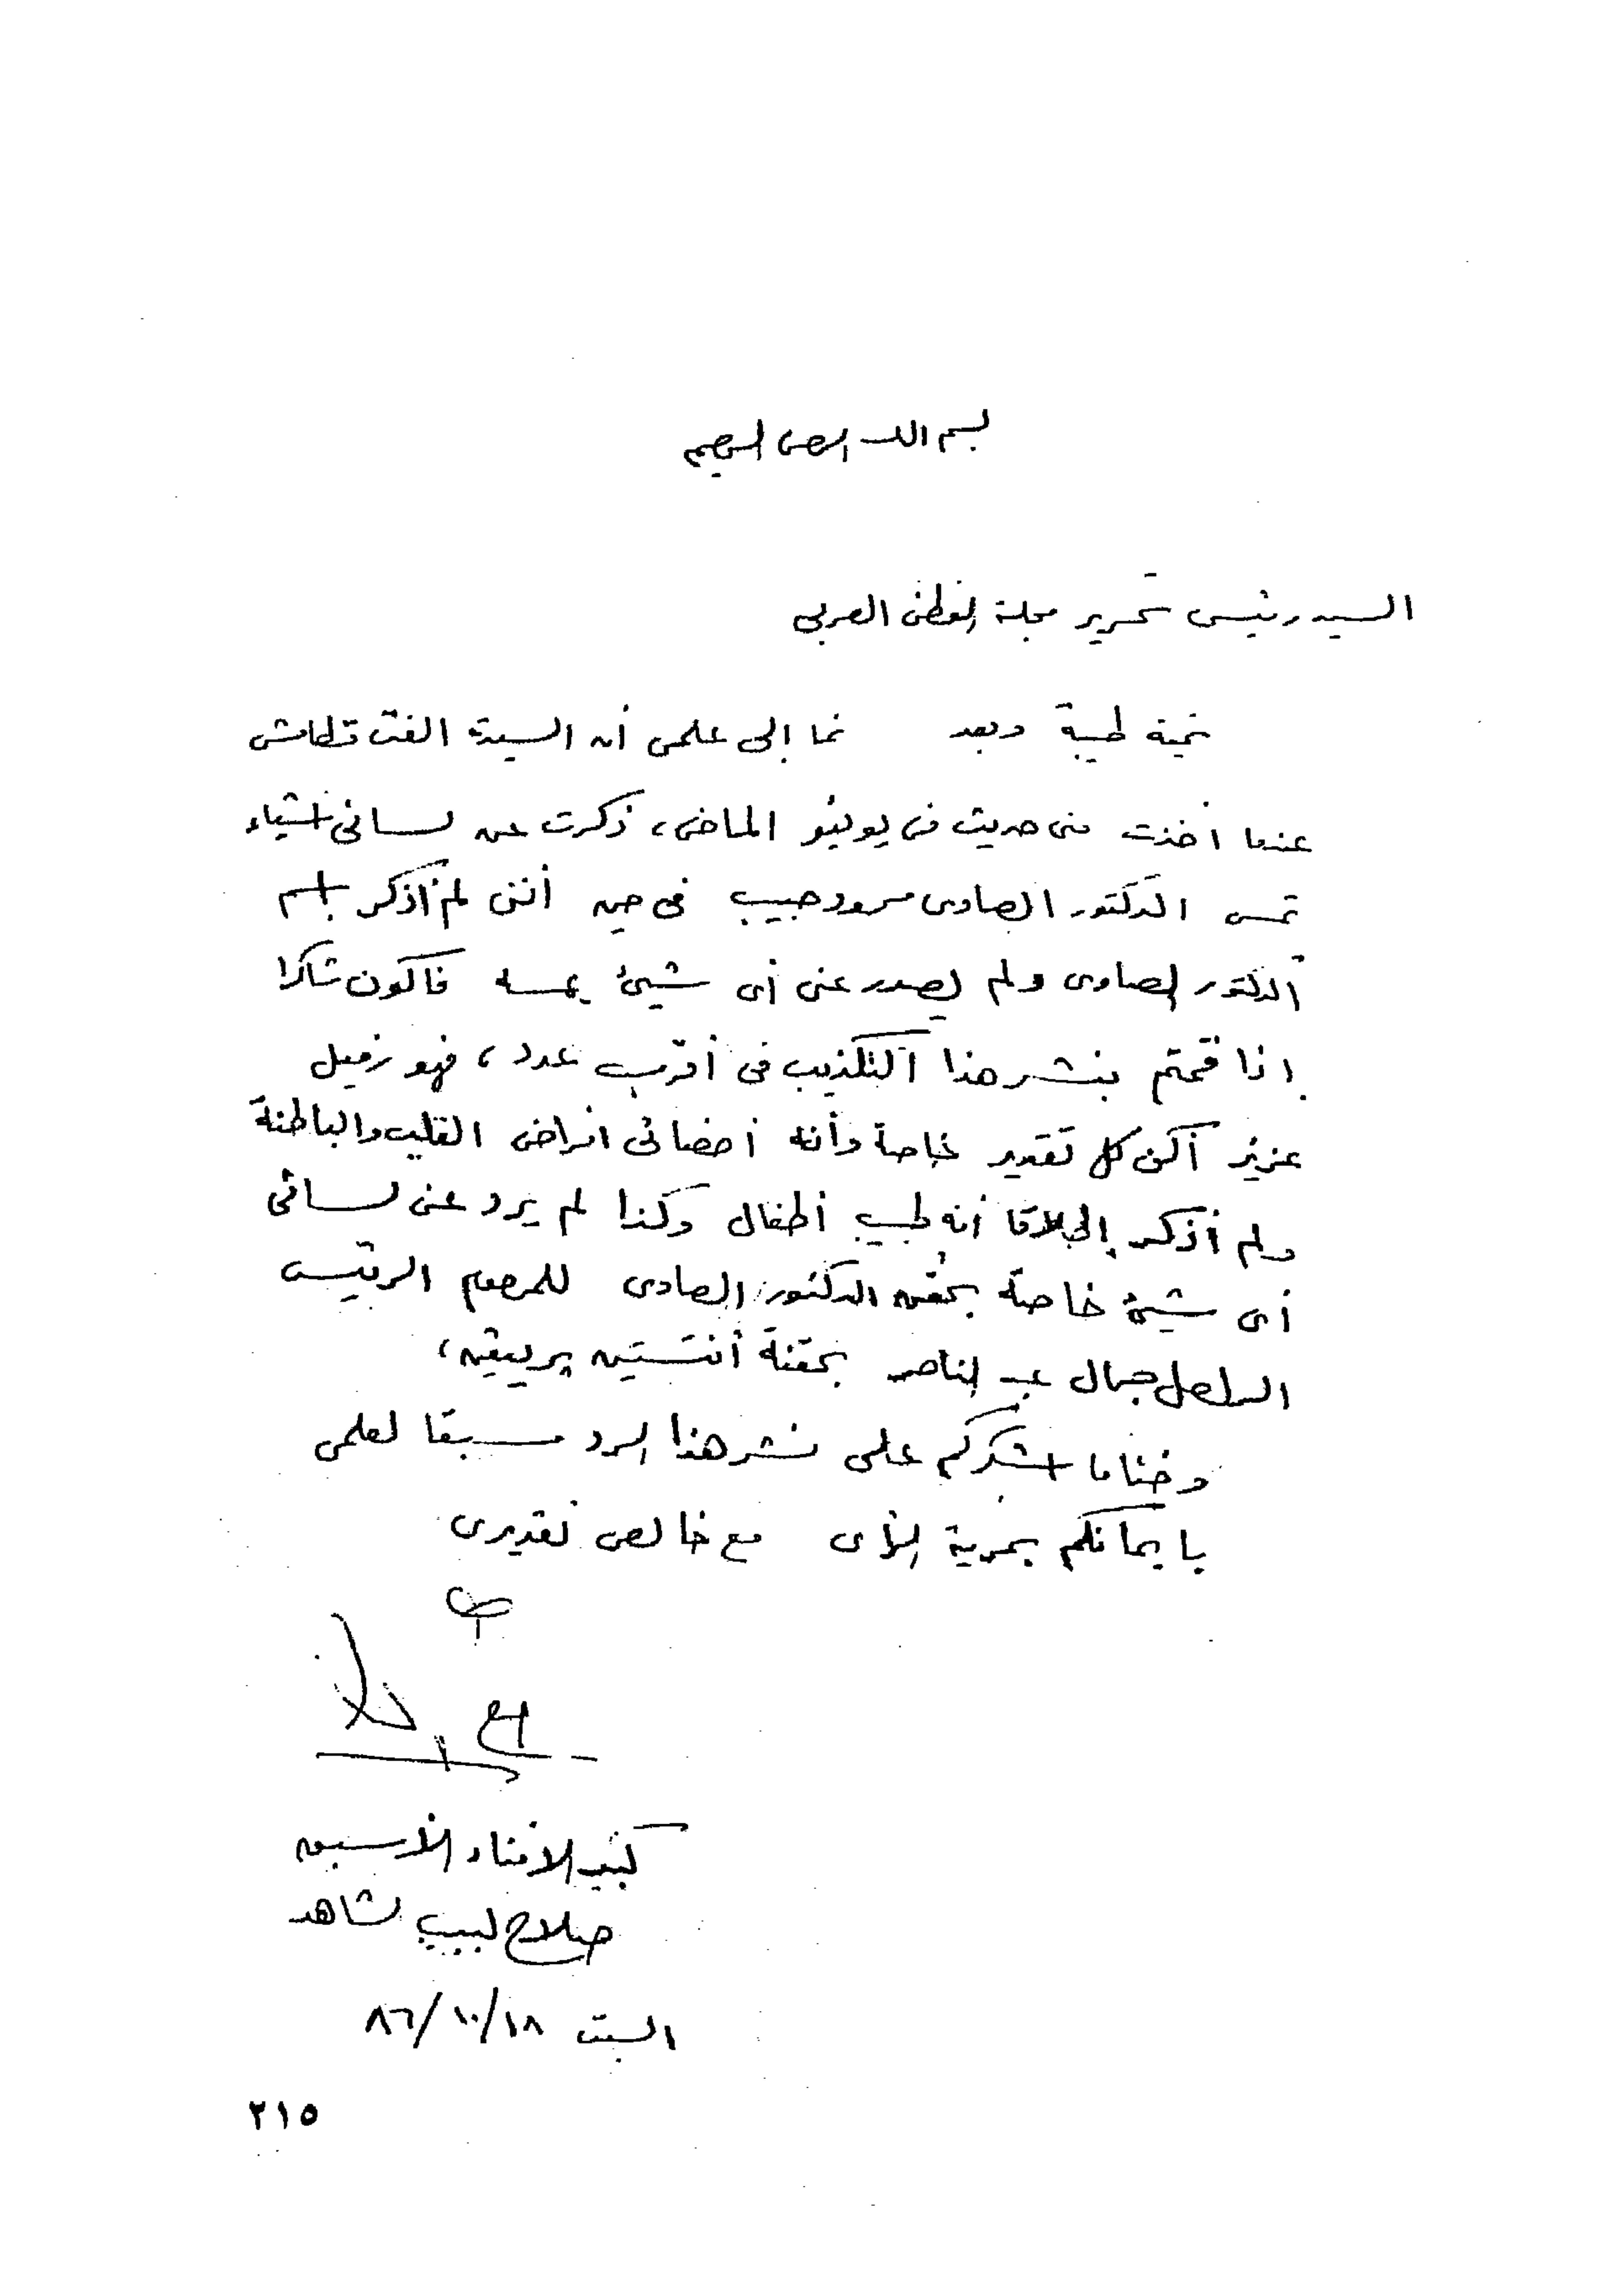 بسم الله الرحمن الرحيم
السيد رئيس تحرير مجلة الوطن العربى
تحية طيبة وبعد نما إلى علمى أن السيدة الفت قطامش
عندما أخذت منى حديث فى يونيو الماضى، ذكرت عن لسانى أشياء
تمس الدكتور الصاوى محمود حبيب فى حين أننى لم أذكر باسم
الدكتور الصاوى ولم يصدر عنى أى شيئ يمسه فأكون شاكرا
إذا قمتم بنشر هذا التكذيب فى أقرب عدد، فهو زميل
عزيز أكن كل تقدير خاصة وأنه أخصائى امراض القلب والباطنة
ولم أذكر إطلاقا أنه طبيب أطفال وكذا لم يرد عن لسانى
أى شيئ خاصة بحقن الدكتور الصاوى للمرحوم الرئيس
الراحل جمال عبد الناصر بحقنة أنتستين بريفين،
وختاما اشكركم على نشر هذا الرد مسبقا لعلمى
بايمانكم بحرية الرأى مع خالص تقديرى
كبير الأمناء الأسبق
صلاح لبيب الشاهد
السبت ٨٦/١٠/١٨
٢١٥